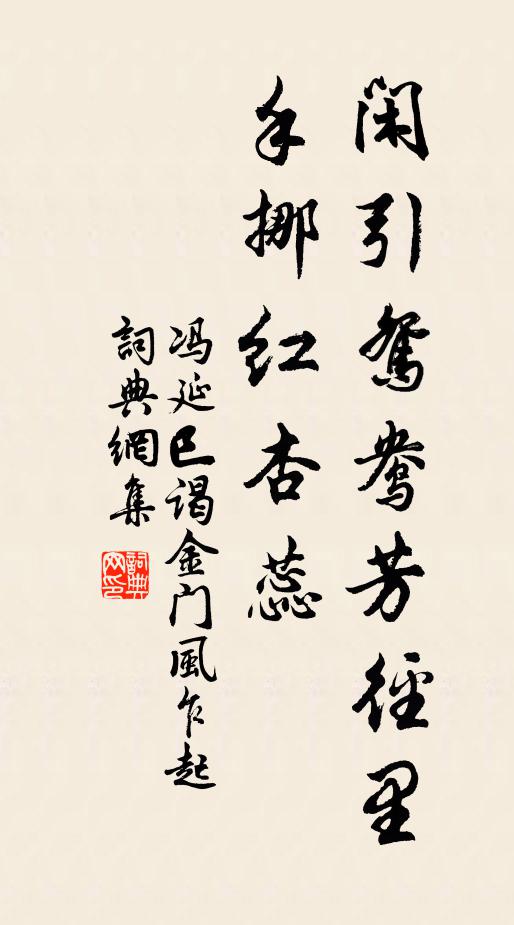 闲引鸳鸯芳径里
手挪红杏蕊
冯延巳谒金门風乍起
詞典網集
詞典
网印